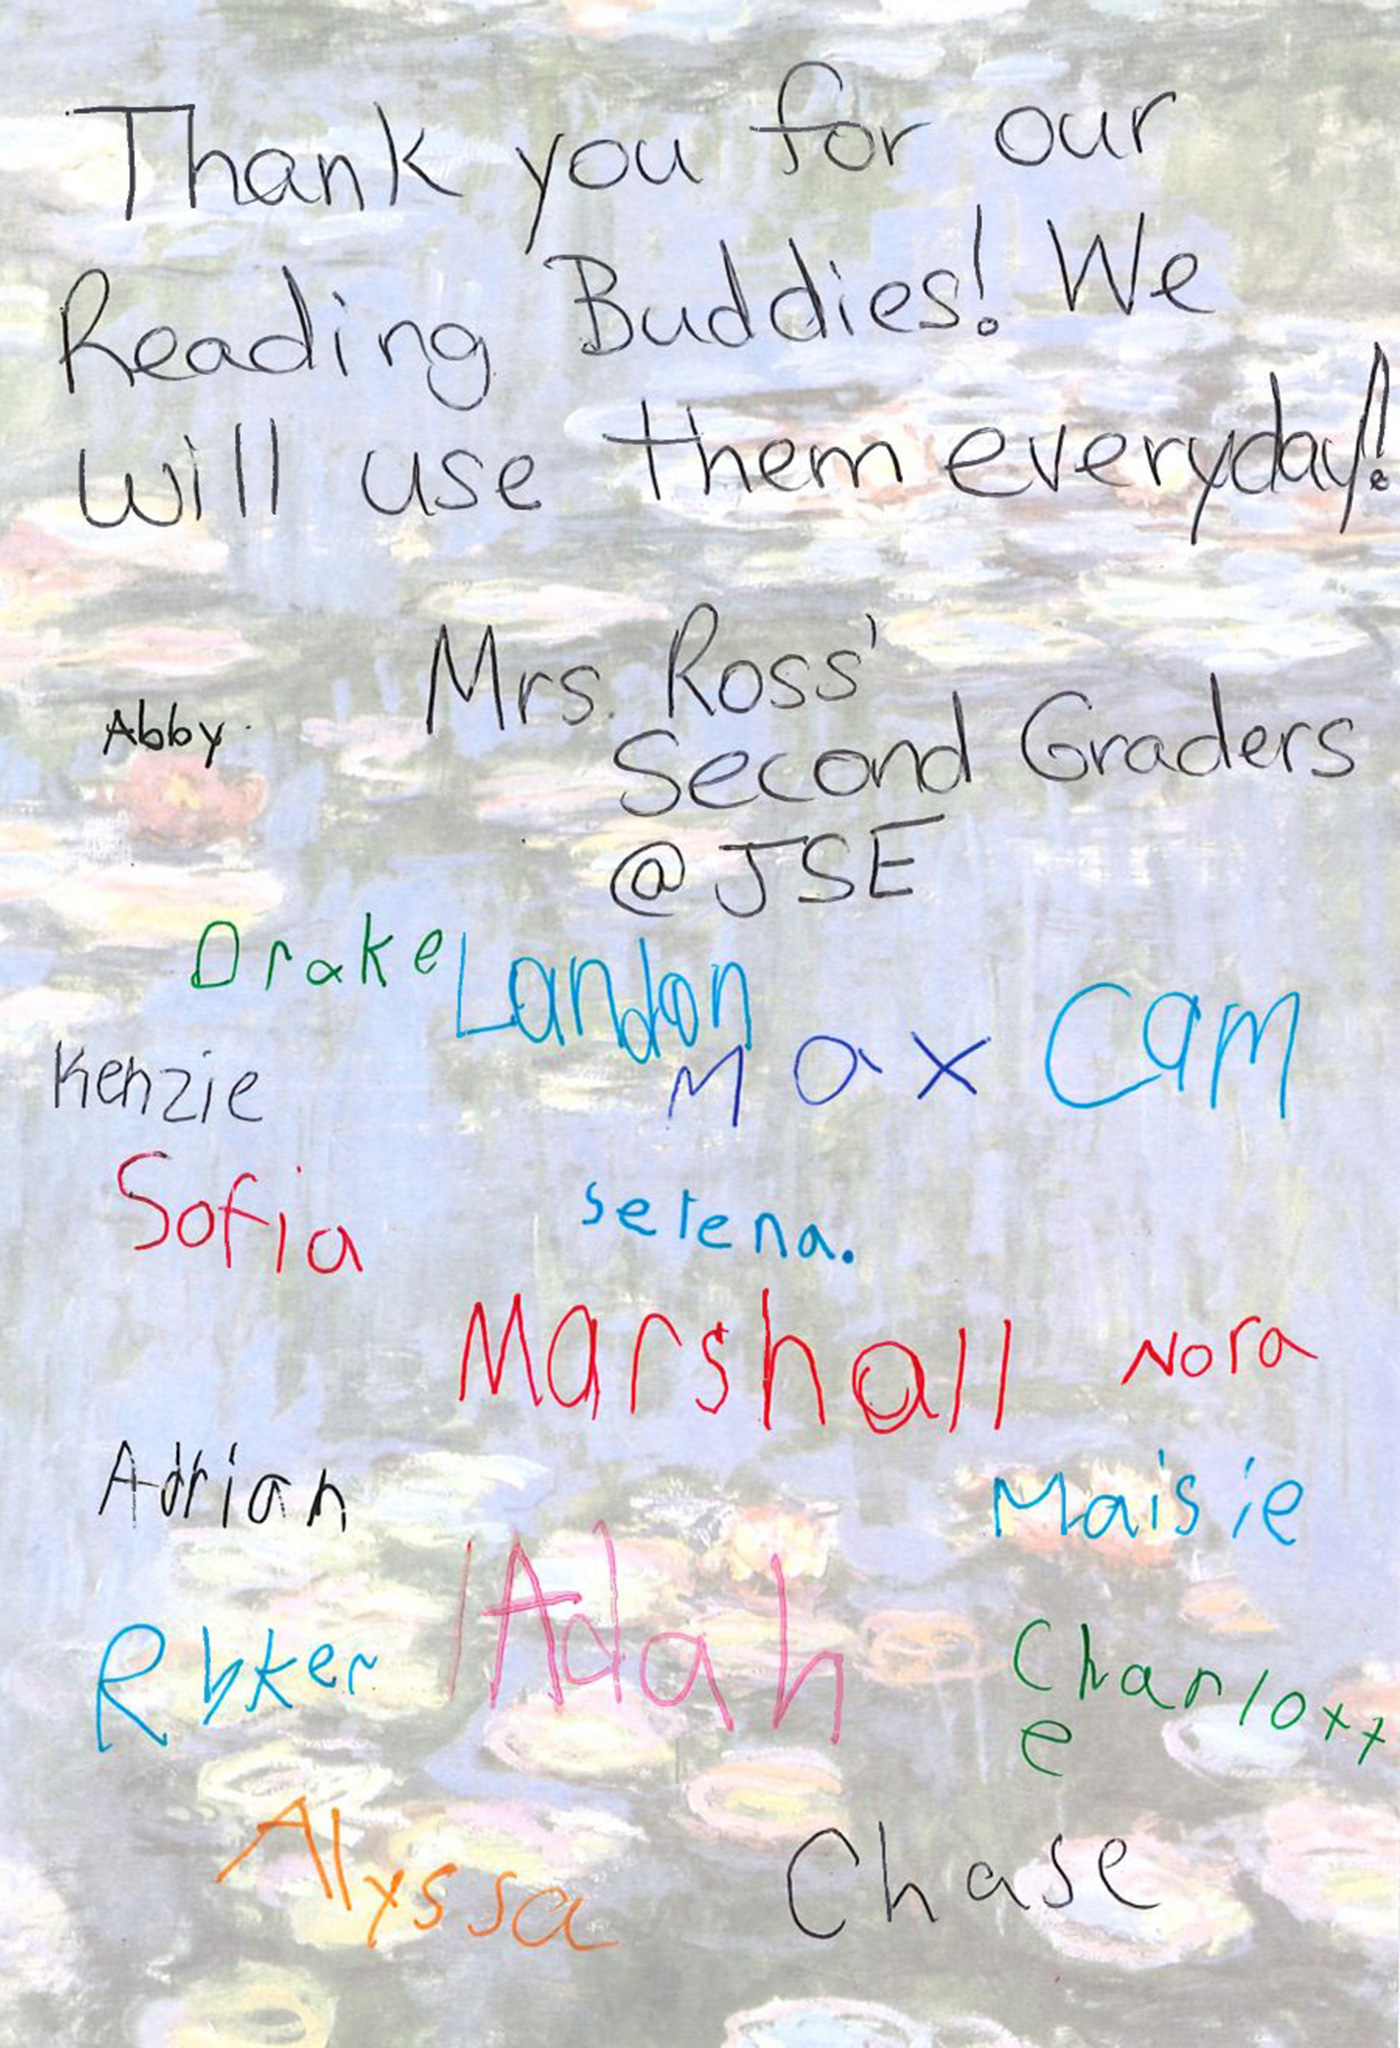 Thank you for our
Reading Buddies! We
will use them everyday!
Mrs. Ross'
Abby
Second Graders
@JSE
Drake Landon
Max Cam
Kenzie
Sofia
selena.
Marshall Nora
Adrian
Maisie
Adah
Ryker
Charlott
e
Alyssa
Chase